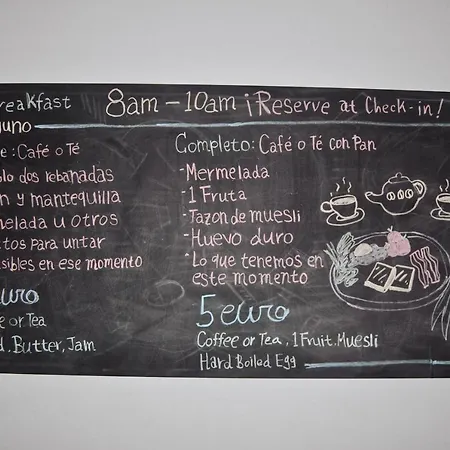 reakfast 8am - 10am ¡Reserve at Check-in!
uno
e: Café o Té
lo dos rebanadas
n y mantequilla
elada u otros
tos para untar
sibles en ese momento
uro
e or Tea
d, Butter, Jam
Completo: Café o Té con Pan
- Mermelada
- 1 Fruta
- Tazon de muesli
- Huevo duro
- Lo que tenemos en
este momento
5 euro
Coffee or Tea, 1 Fruit. Muesli
Hard Boiled Egg